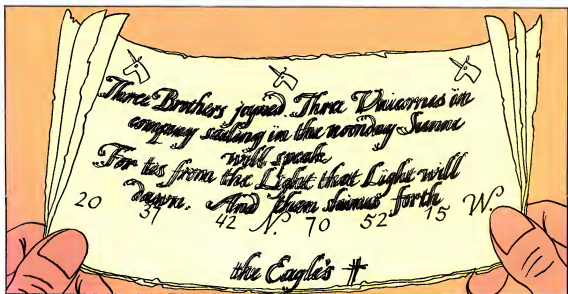 Three Brothers joyned. Three Unicornes in
company sailing in the noonday Sunne
will speak
For tis from the Light that Light will
dawn. And then shines forth
20 37 42 N. 70 52 15 W.
the Eagle's ‡